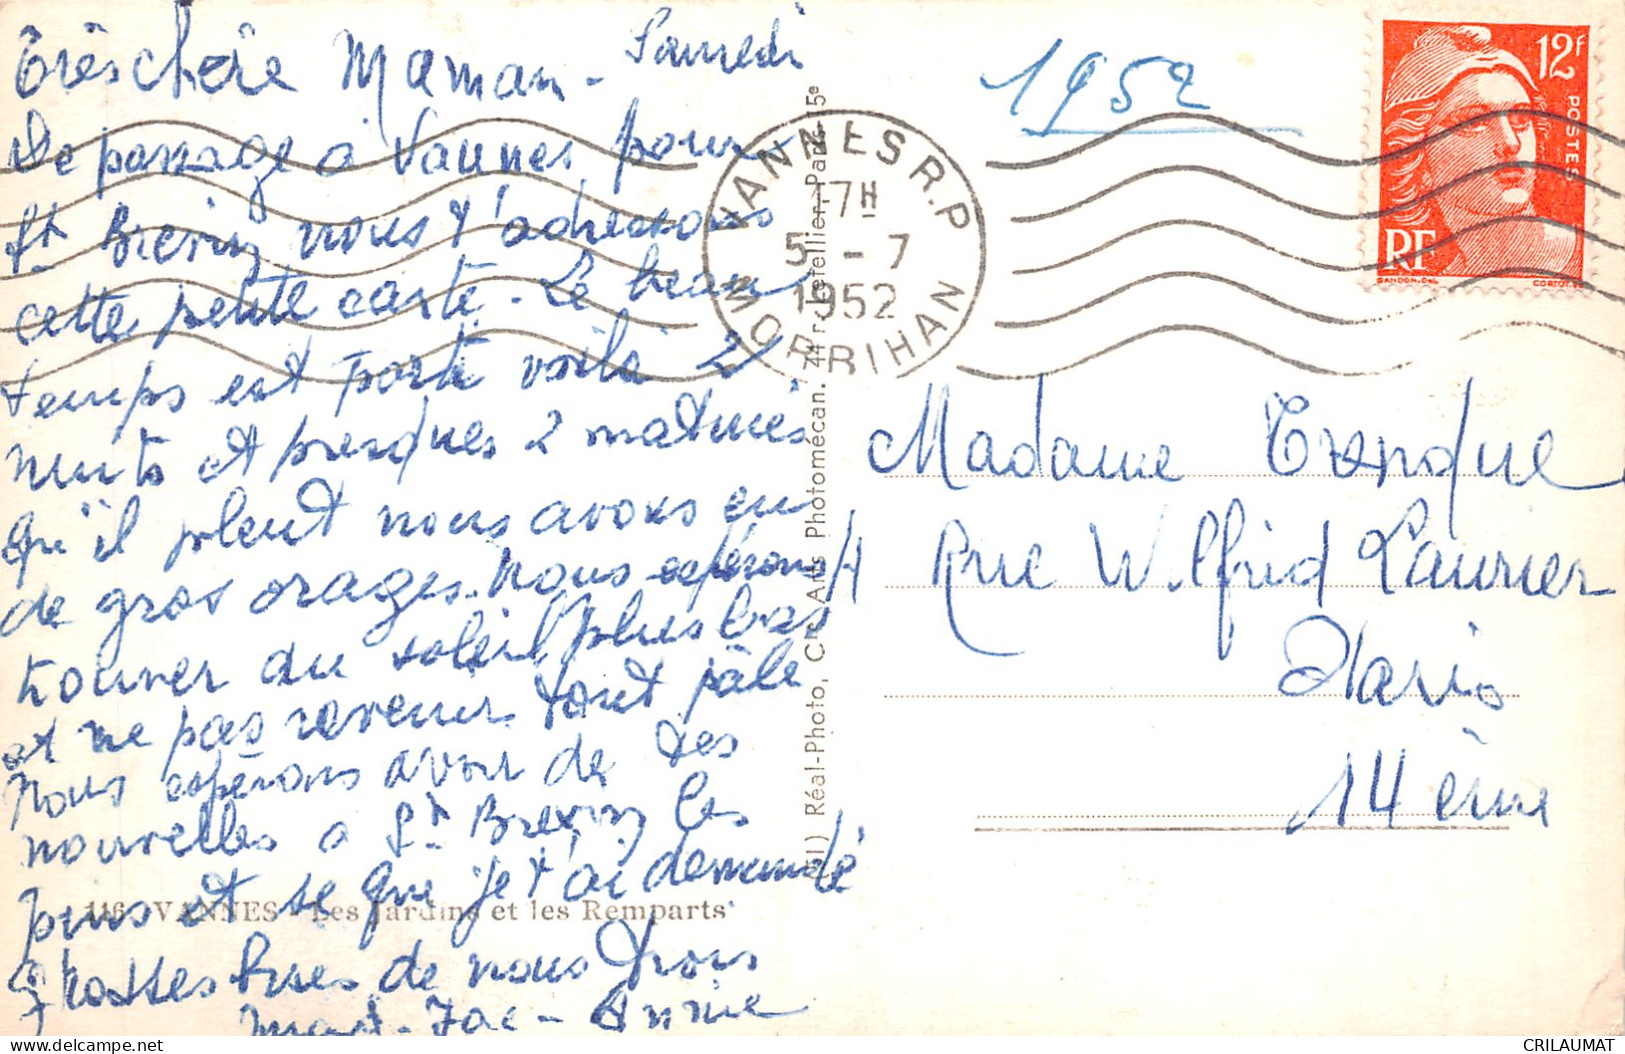 Très chère Maman - Samedi
De passage à Vannes pour
St Brevin nous t'adressons
cette petite carte. Le beau
temps est porti voilà 2
nuits et presques 2 matinés
qu'il pleut nous avons eu
de gros orages. Nous espérons
trouver du soleil plus bas
et ne pas revenir tout pâle
Nous espérons avoir de tes
nouvelles a St Brevin les
puis et se que je t'ai demandé
Grosses bises de nous trois
Jac - Annie
116. VANNES - Les Jardins et les Remparts
51) Réal-Photo, Cie Arts Photomécan. 44 r. Letellier, Paris 15e
1952
VANNES R.P
17H
5 - 7
1952
MORBIHAN
12F
POSTES
RF
GANDON.DEL
CORTOT.SC
Madame
4 Rue Wilfrid Laurier
Paris
14 ème
CRILAUMAT